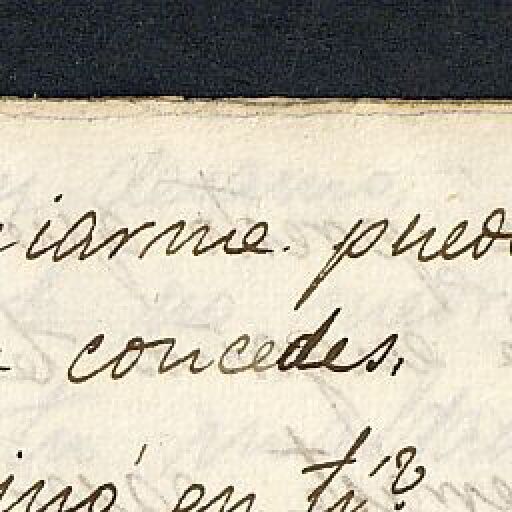 iarme. pued
concedes.
inó en tí?